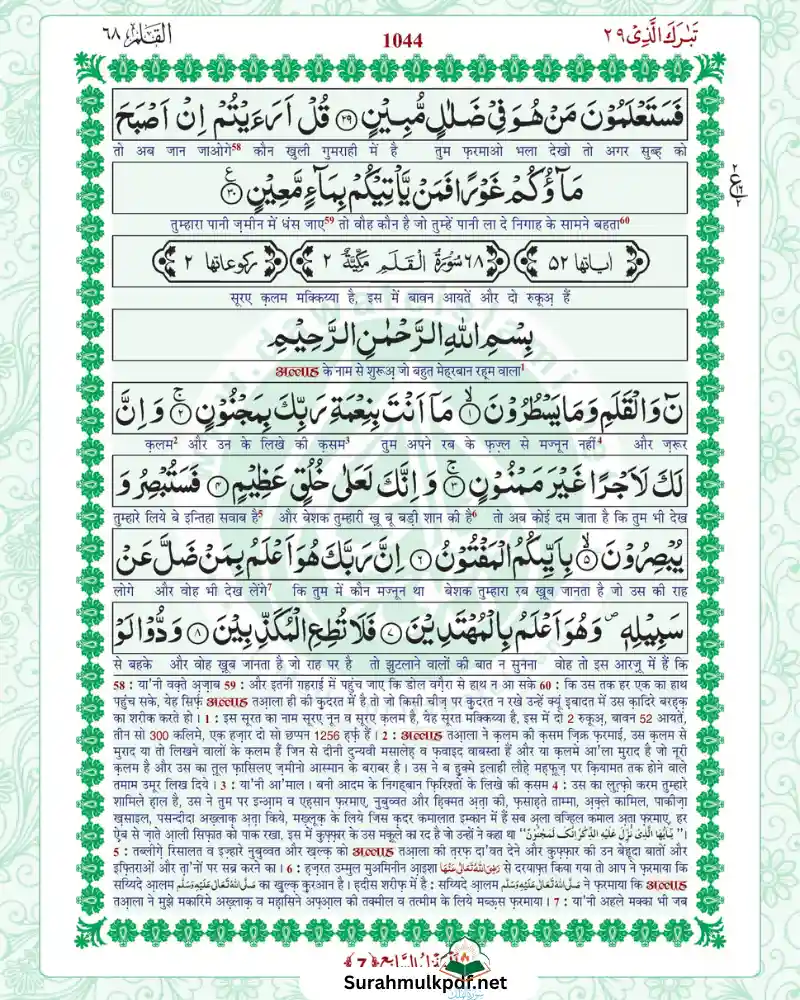 القلم ٦٨
1044
تَبٰرَكَ الَّذِیْ ٢٩
فَسَتَعْلَمُوْنَ مَنْ هُوَ فِیْ ضَلٰلٍ مُّبِیْنٍ ﴿٢٩﴾ قُلْ اَرَءَیْتُمْ اِنْ اَصْبَحَ
तो अब जान जाओगे58 कौन खुली गुमराही में है तुम फ़रमाओ भला देखो तो अगर सुब्ह को
مَآؤُكُمْ غَوْرًا فَمَنْ یَّاْتِیْكُمْ بِمَآءٍ مَّعِیْنٍ ﴿٣٠﴾
तुम्हारा पानी ज़मीन में धंस जाए59 तो वोह कौन है जो तुम्हें पानी ला दे निगाह के सामने बहता60
اٰیاتها ٥٢ ٦٨ سُوْرَةُ الْقَلَمِ مَكِّیَّةٌ ٢ رکوعاتها ٢
सूरए क़लम मक्किय्या है, इस में बावन आयतें और दो रुकूअ़ हैं
بِسْمِ اللّٰهِ الرَّحْمٰنِ الرَّحِیْمِ
अल्लाह के नाम से शुरूअ़ जो बहुत मेहरबान रह़म वाला1
نٓ وَ الْقَلَمِ وَ مَا یَسْطُرُوْنَ ﴿١﴾ مَاۤ اَنْتَ بِنِعْمَةِ رَبِّكَ بِمَجْنُوْنٍ ﴿٢﴾ وَ اِنَّ
क़लम2 और उन के लिखे की क़सम3 तुम अपने रब के फ़ज़्ल से मज्नून नहीं4 और ज़रूर
لَكَ لَاَجْرًا غَیْرَ مَمْنُوْنٍ ﴿٣﴾ وَ اِنَّكَ لَعَلٰى خُلُقٍ عَظِیْمٍ ﴿٤﴾ فَسَتُبْصِرُ وَ
तुम्हारे लिये बे इन्तिहा सवाब है5 और बेशक तुम्हारी ख़ू बू बड़ी शान की है6 तो अब कोई दम जाता है कि तुम भी देख
یُبْصِرُوْنَ ﴿٥﴾ بِاَیِّكُمُ الْمَفْتُوْنُ ﴿٦﴾ اِنَّ رَبَّكَ هُوَ اَعْلَمُ بِمَنْ ضَلَّ عَنْ
लोगे और वोह भी देख लेंगे7 कि तुम में कौन मज्नून था बेशक तुम्हारा रब ख़ूब जानता है जो उस की राह
سَبِیْلِهٖ ۪ وَ هُوَ اَعْلَمُ بِالْمُهْتَدِیْنَ ﴿٧﴾ فَلَا تُطِعِ الْمُكَذِّبِیْنَ ﴿٨﴾ وَدُّوْا لَوْ
से बहके और वोह ख़ूब जानता है जो राह पर है तो झुटलाने वालों की बात न सुनना वोह तो इस आरज़ू में हैं कि
58 : या'नी वक़्ते अ़ज़ाब 59 : और इतनी गहराई में पहुंच जाए कि डोल वग़ैरा से हाथ न आ सके 60 : कि उस तक हर एक का हाथ
पहुंच सके, येह सिर्फ़ अल्लाह तआ़ला ही की क़ुदरत में है तो जो किसी चीज़ पर क़ुदरत न रखे उन्हें क्यूं इबादत में उस क़ादिरे बरह़क़
का शरीक करते हो। 1 : इस सूरत का नाम सूरए नून व सूरए क़लम है, येह सूरत मक्किय्या है, इस में दो 2 रुकूअ़, बावन 52 आयतें,
तीन सो 300 कलिमे, एक हज़ार दो सो छप्पन 1256 ह़र्फ़ हैं। 2 : अल्लाह तआ़ला ने क़लम की क़सम ज़िक्र फ़रमाई, उस क़लम से
मुराद या तो लिखने वालों के क़लम हैं जिन से दीनी दुन्यवी मसालेह़ व फ़वाइद वाबस्ता हैं और या क़लमे आ'ला मुराद है जो नूरी
क़लम है और उस का त़ूल फ़ासिलए ज़मीनो आस्मान के बराबर है। उस ने ब हुक्मे इलाही लौह़े मह़फ़ूज़ पर क़ियामत तक होने वाले
तमाम उमूर लिख दिये। 3 : या'नी आ'माल। बनी आदम के निगह्बान फ़िरिश्तों के लिखे की क़सम 4 : उस का लुत़्फ़ो करम तुम्हारे
शामिले ह़ाल है, उस ने तुम पर इन्आ़म व एह़सान फ़रमाए, नुबुव्वत और ह़िक्मत अ़त़ा की, फ़साह़ते ताम्मा, अ़क़्ले कामिल, पाकीज़ा
ख़साइल, पसन्दीदा अख़्लाक़ अ़त़ा किये, मख़्लूक़ के लिये जिस क़दर कमालात इम्कान में हैं सब अ़ला वज्हिल कमाल अ़त़ा फ़रमाए, हर
ऐ़ब से ज़ाते आ़ली सिफ़ात को पाक रखा, इस में कुफ़्फ़ार के उस मक़ूले का रद है जो उन्हों ने कहा था "یٰۤاَیُّهَا الَّذِیْ نُزِّلَ عَلَیْهِ الذِّكْرُ اِنَّكَ لَمَجْنُوْنٌ"।
5 : तब्लीग़े रिसालत व इज़्हारे नुबुव्वत और ख़ल्क़ को अल्लाह तआ़ला की त़रफ़ दा'वत देने और कुफ़्फ़ार की उन बेहूदा बातों और
इफ़्तिराओं और त़ा'नों पर सब्र करने का। 6 : ह़ज़रत उम्मुल मुअमिनीन आ़इशा رَضِیَ اللّٰهُ تَعَالٰی عَنْهَا से दरयाफ़्त किया गया तो आप ने फ़रमाया कि
सय्यिदे आ़लम صَلَّی اللّٰهُ تَعَالٰی عَلَیْهِ وَسَلَّم का ख़ुल्क़ क़ुरआन है। ह़दीस शरीफ़ में है : सय्यिदे आ़लम صَلَّی اللّٰهُ تَعَالٰی عَلَیْهِ وَسَلَّم ने फ़रमाया कि अल्लाह
तआ़ला ने मुझे मकारिमे अख़्लाक़ व मह़ासिने अफ़्आ़ल की तक्मील व तत्मीम के लिये मब्ऊ़स फ़रमाया। 7 : या'नी अहले मक्का भी जब
Surahmulkpdf.net